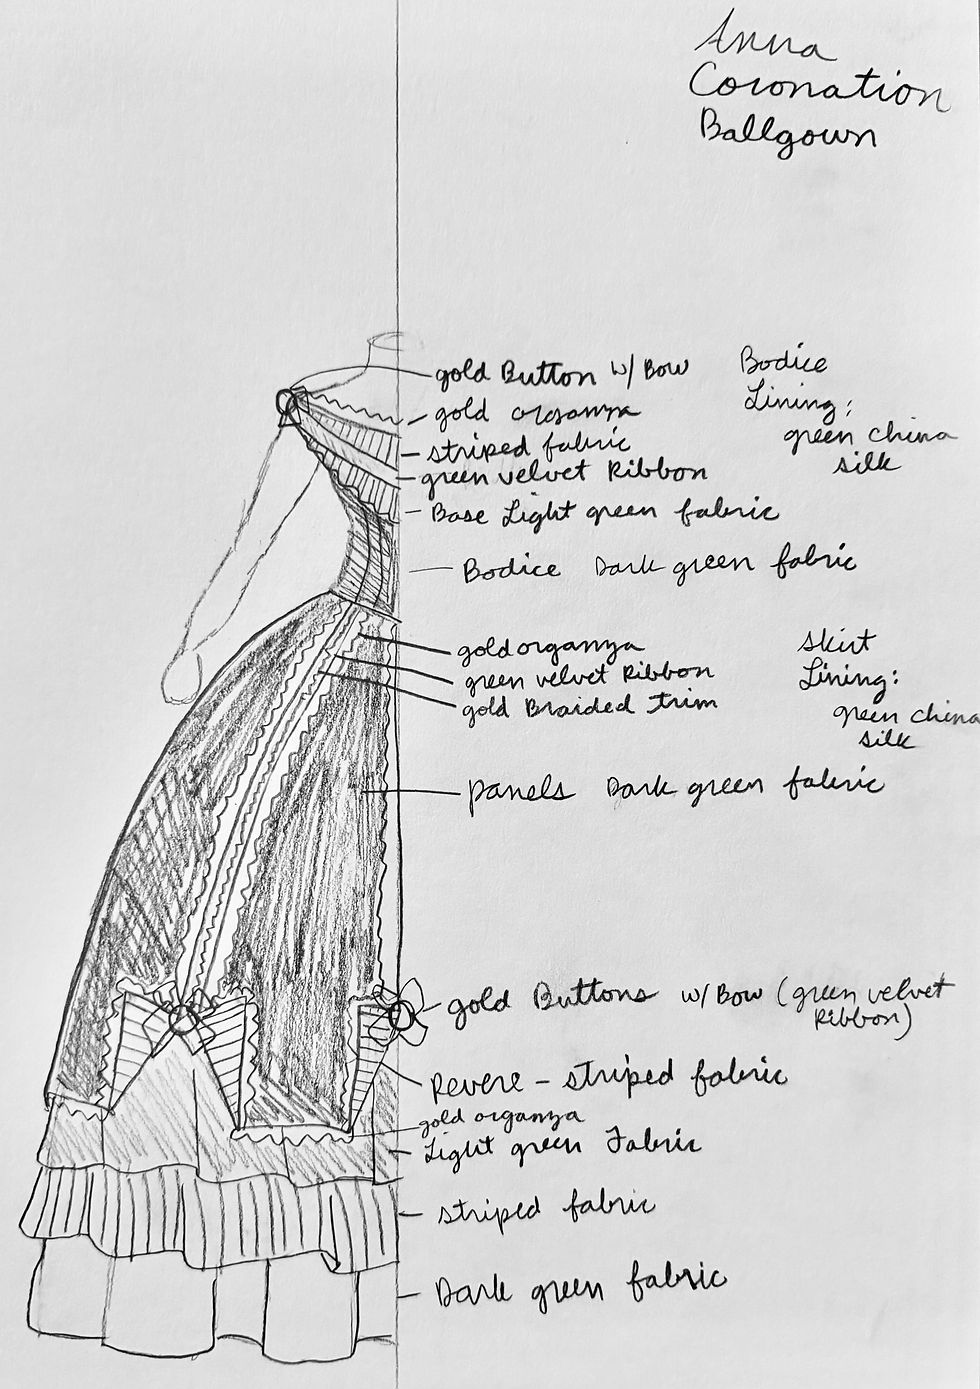 Anna
Coronation
Ballgown
gold Button w/ Bow
gold organza
striped fabric
green velvet Ribbon
Base Light green fabric
Bodice Dark green fabric
Bodice
Lining:
green china
silk
gold organza
green velvet Ribbon
gold Braided trim
Skirt
Lining:
green china
silk
panels Dark green fabric
gold Buttons w/ Bow (green velvet
Ribbon)
Revere - striped fabric
gold organza
Light green Fabric
striped fabric
Dark green fabric